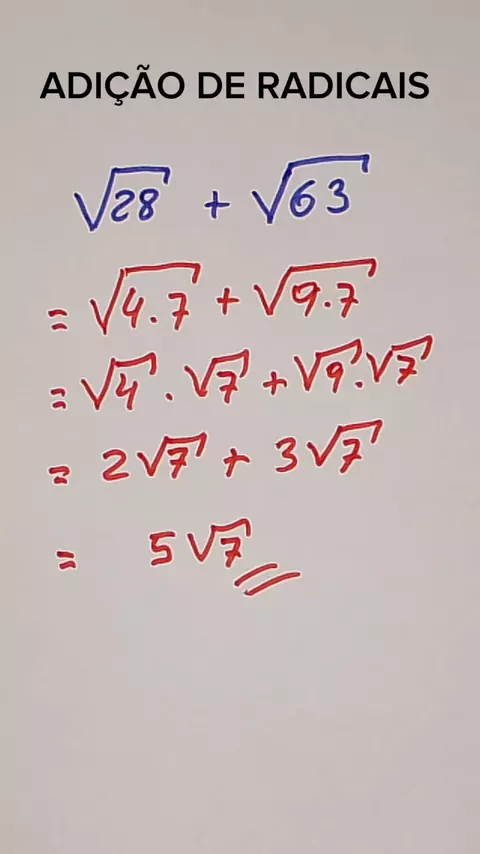 ADIÇÃO DE RADICAIS
√28 + √63
= √4.7 + √9.7
= √4 . √7 + √9 . √7
= 2√7 + 3√7
= 5√7